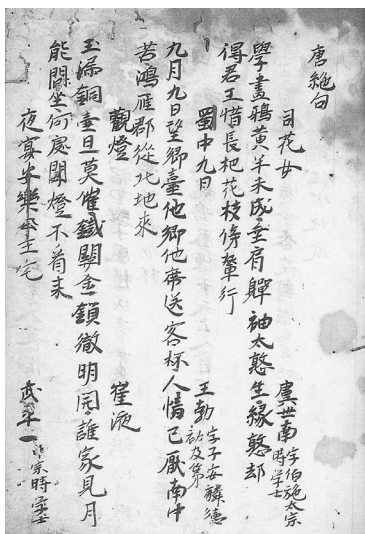 唐絶句
司花女 虞世南 字伯施太宗時学士
學畫鴉黄半未成垂肩嚲袖太憨生緣憨却
得君王惜長把花枝傍輦行
蜀中九日 王勃 字子安麟德初及第
九月九日望郷臺他郷他席送客杯人情已厭南中
苦鴻雁郡從北地來
觀燈 崔液
玉漏銅壺且莫催鐵關金鎖徹明開誰家見月
能閑坐何處聞燈不看来
夜宴安樂公主宅 武平一 中宗時学士